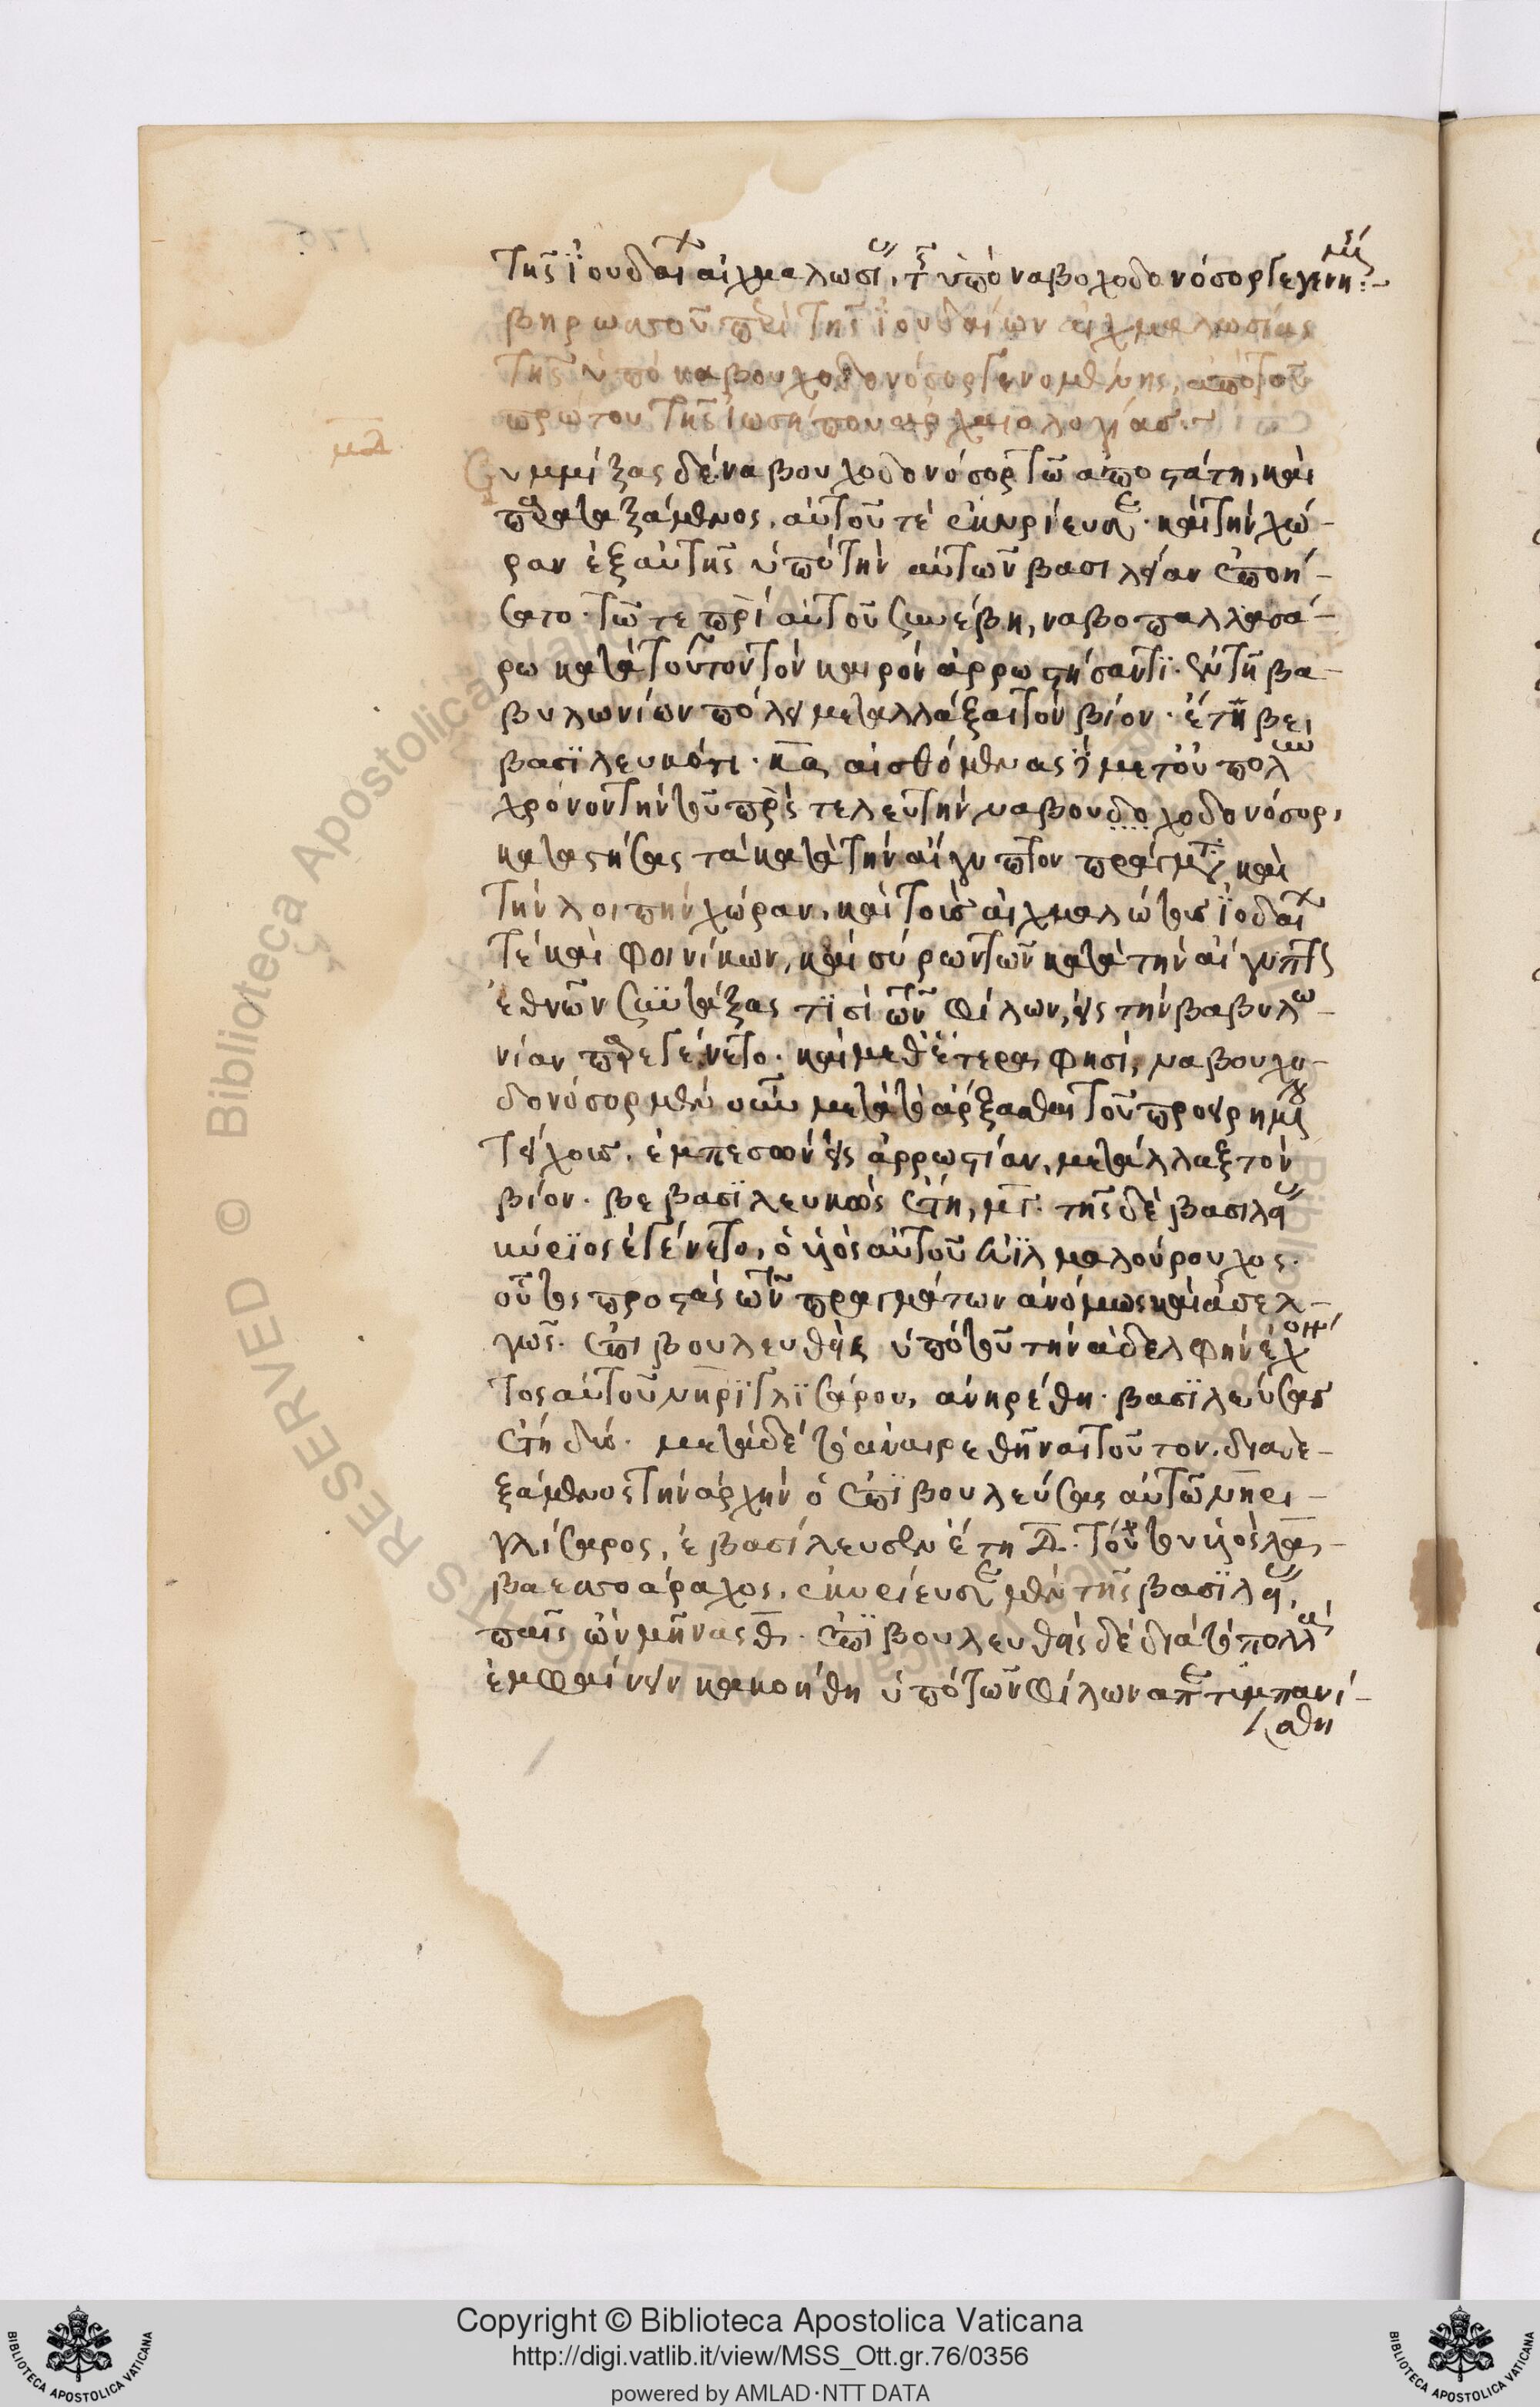 τῆς ἰουδαϊκ αἰχμαλωσί, τ ὑπὸ ναβοχοδονόσορ γεγενημς:-
βηρωσσοῦ περὶ τῆς ἰουδαίων αἰχμαλωσίας
τῆς ὑπὸ ναβουχοδονόσορ γενομένης, ἀπὸ τοῦ
πρώτου τῆς ἰωσήπου ἀρχαιολογίας
μα
Συμμίξας δὲ ναβουχοδονόσορ τῶ ἀποστάτη, καὶ
παραταξάμενος, αὐτοῦ τὲ ἐκυρίευσε. καὶ τὴν χώ-
ραν ἐξαὐτῆς ὑπὸ τὴν αὐτῶν βασιλείαν ἐποιή-
σατο. τῶ τε πρὶ αὐτοῦ συνέβη, ναβοπαλλασά-
ρω κατὰ τοῦτον τὸν καιρὸν ἀρρωστήσαντι. ἐν τῆ βα-
βυλωνίων πόλει μεταλλάξαι τὸν βίον. ἔτη βε
βασϊλευκότι. κα αἰσθόμενος μετ οὐ πολὺν
χρόνον τὴν τοῦ πρς τελευτὴν ναβουδοχοδονόσορ,
καταστήσας τὰ κατὰ τὴν αἴγυπτον πράγματ καὶ
τὴν λοιπὴν χώραν, καὶ τοὺς αἰχμαλώτους ϊοδαί
τὲ καὶ φοινίκων, καὶ σύρων τῶν κατὰ τὴν αἴγυπτ
ἐθνῶν συντάξας τϊσὶ τῶν φίλων, εἰς τὴν βαβυλω-
νίαν παρεγένετο. καὶ μεθ' ἕτερα φησὶ, ναβουχο-
δονόσορ μὲν οὖν μετὰ τὸ ἄρξασθαι τοῦ προειρημ
τείχους, ἐμπεσὼν εἰς ἀρρωστίαν, μετάλλαξ τὸν
βίον. βεβασϊλευκὼς ἔτη, μγ. τῆς δὲ βασιλεί
κύρϊος ἐγένετο, ὁ υἱὸς αὐτοῦ εὐϊλμαλούρουχος.
οὗτος προστὰς τῶν πραγμάτων ἀνόμως καὶ ἀσελ-
γῶς. ἐπιβουλευθεὶς ὑπὸ τοῦ τὴν ἀδελφὴν ἔχον
τος αὐτοῦ νηρϊγλϊσάρου, ἀνηρέθη. βασϊλεύσας
ἔτη δύο. μετὰ δὲ τὸ ἀναιρεθῆναι τοῦτον. διαδε-
ξάμενος τὴν ἀρχὴν ὁ ἐπϊβουλεύσας αὐτῶ νηρι-
γλίσαρος, ἐβασίλευσεν ἔτη δ. τούτου υἱὸς λα-
βαεσσοάραχος, ἐκυρίευσε μὲν τῆς βασϊλεί,
παῖς ὢν μῆνας θ. ἐπϊβουλευθεὶς δὲ διὰ τὸ πολλὰ
ἐμφαίνειν κακοήθη ὑπὸ τῶν φίλων ἀπετυμπανί-
σθη
Copyright © Biblioteca Apostolica Vaticana
http://digi.vatlib.it/view/MSS_Ott.gr.76/0356
powered by AMLAD·NTT DATA